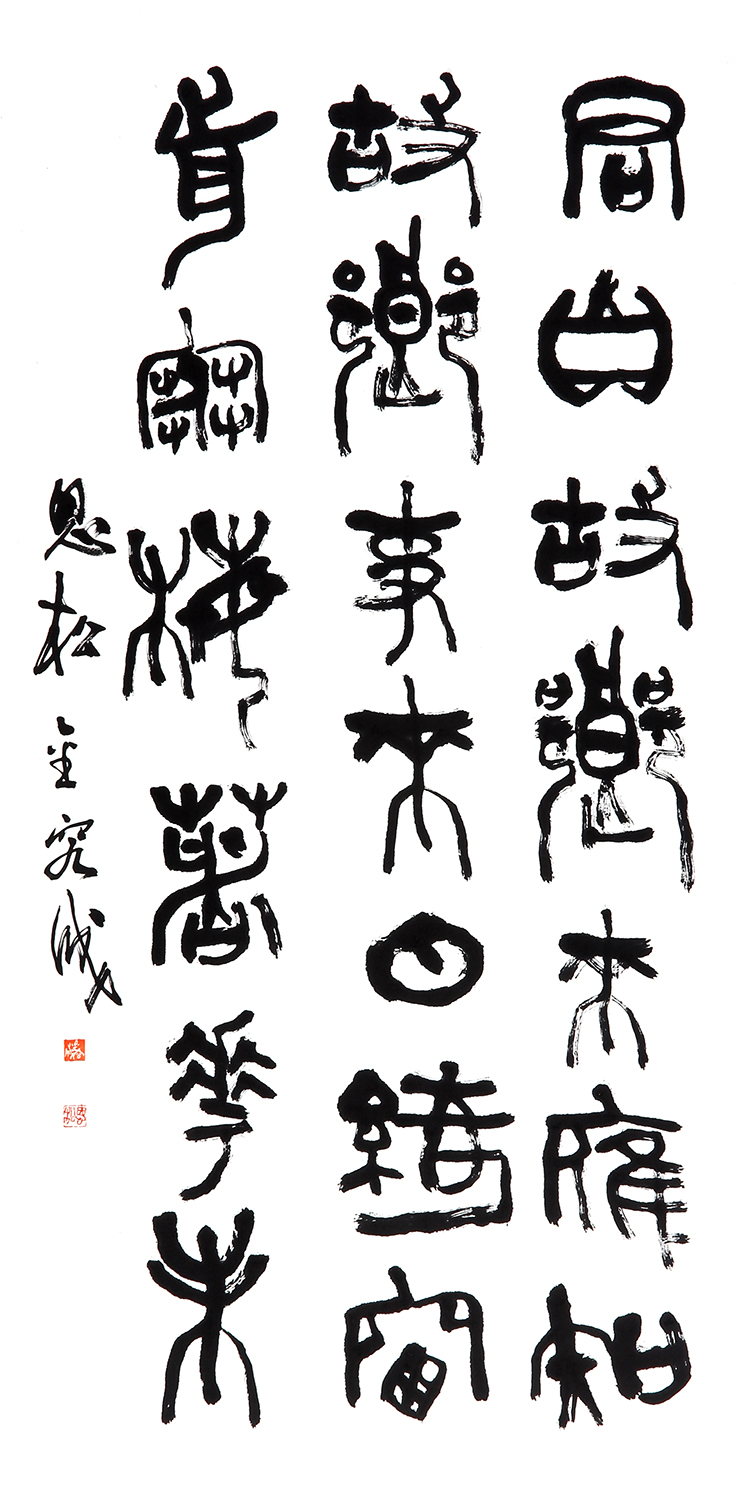 君自故鄉來應知
故鄉事來日綺窗
前寒梅著花未
松 金